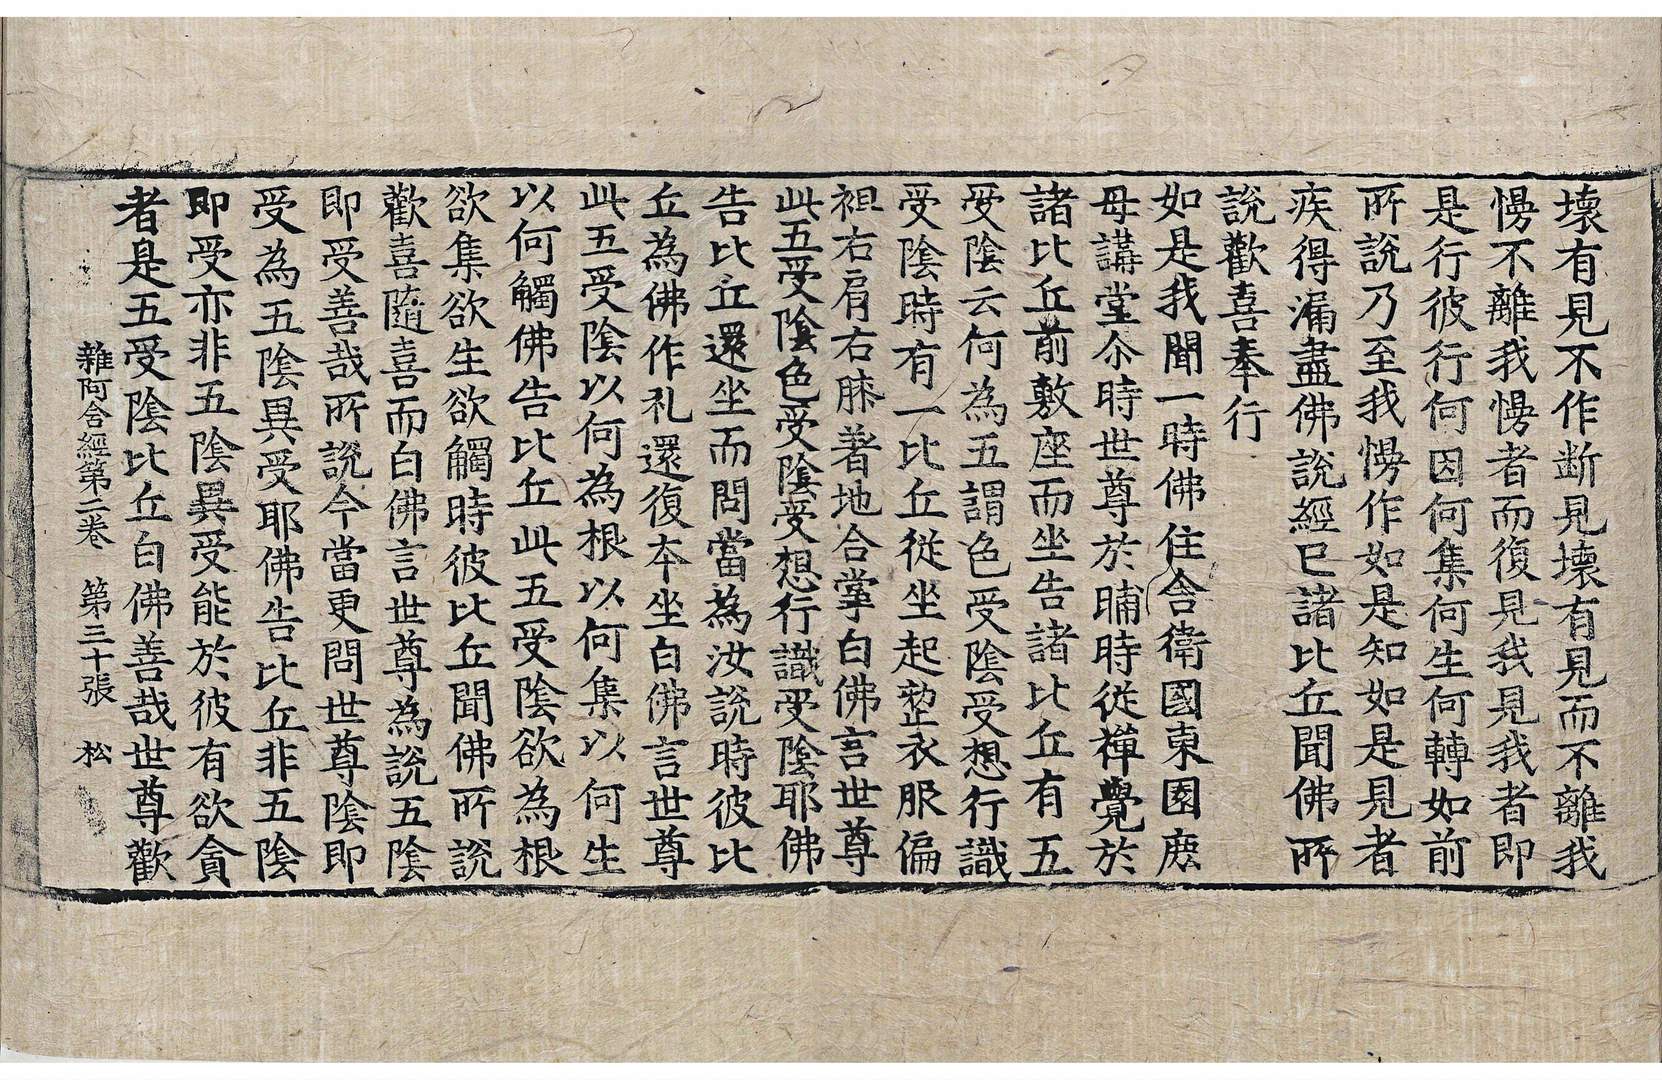 壞有見不作断見壞有見而不離我
慢不離我慢者而復見我見我者即
是行彼行何因何集何生何轉如前
所說乃至我慢作如是知如是見者
疾得漏盡佛說經已諸比丘聞佛所
說歡喜奉行
如是我聞一時佛住舍衛國東園鹿
母講堂尒時世尊於晡時從禪覺於
諸比丘前敷座而坐告諸比丘有五
受陰云何為五謂色受陰受想行識
受陰時有一比丘從坐起整衣服偏
袒右肩右膝著地合掌白佛言世尊
此五受陰色受陰受想行識受陰耶佛
告比丘還坐而問當為汝說時彼比
丘為佛作礼還復本坐白佛言世尊
此五受陰以何為根以何集以何生
以何觸佛告比丘此五受陰欲為根
欲集欲生欲觸時彼比丘聞佛所說
歡喜隨喜而白佛言世尊為說五陰
即受善哉所說今當更問世尊陰即
受為五陰異受耶佛告比丘非五陰
即受亦非五陰異受能於彼有欲貪
者是五受陰比丘白佛善哉世尊歡
雜阿含經第二卷 第三十張 松